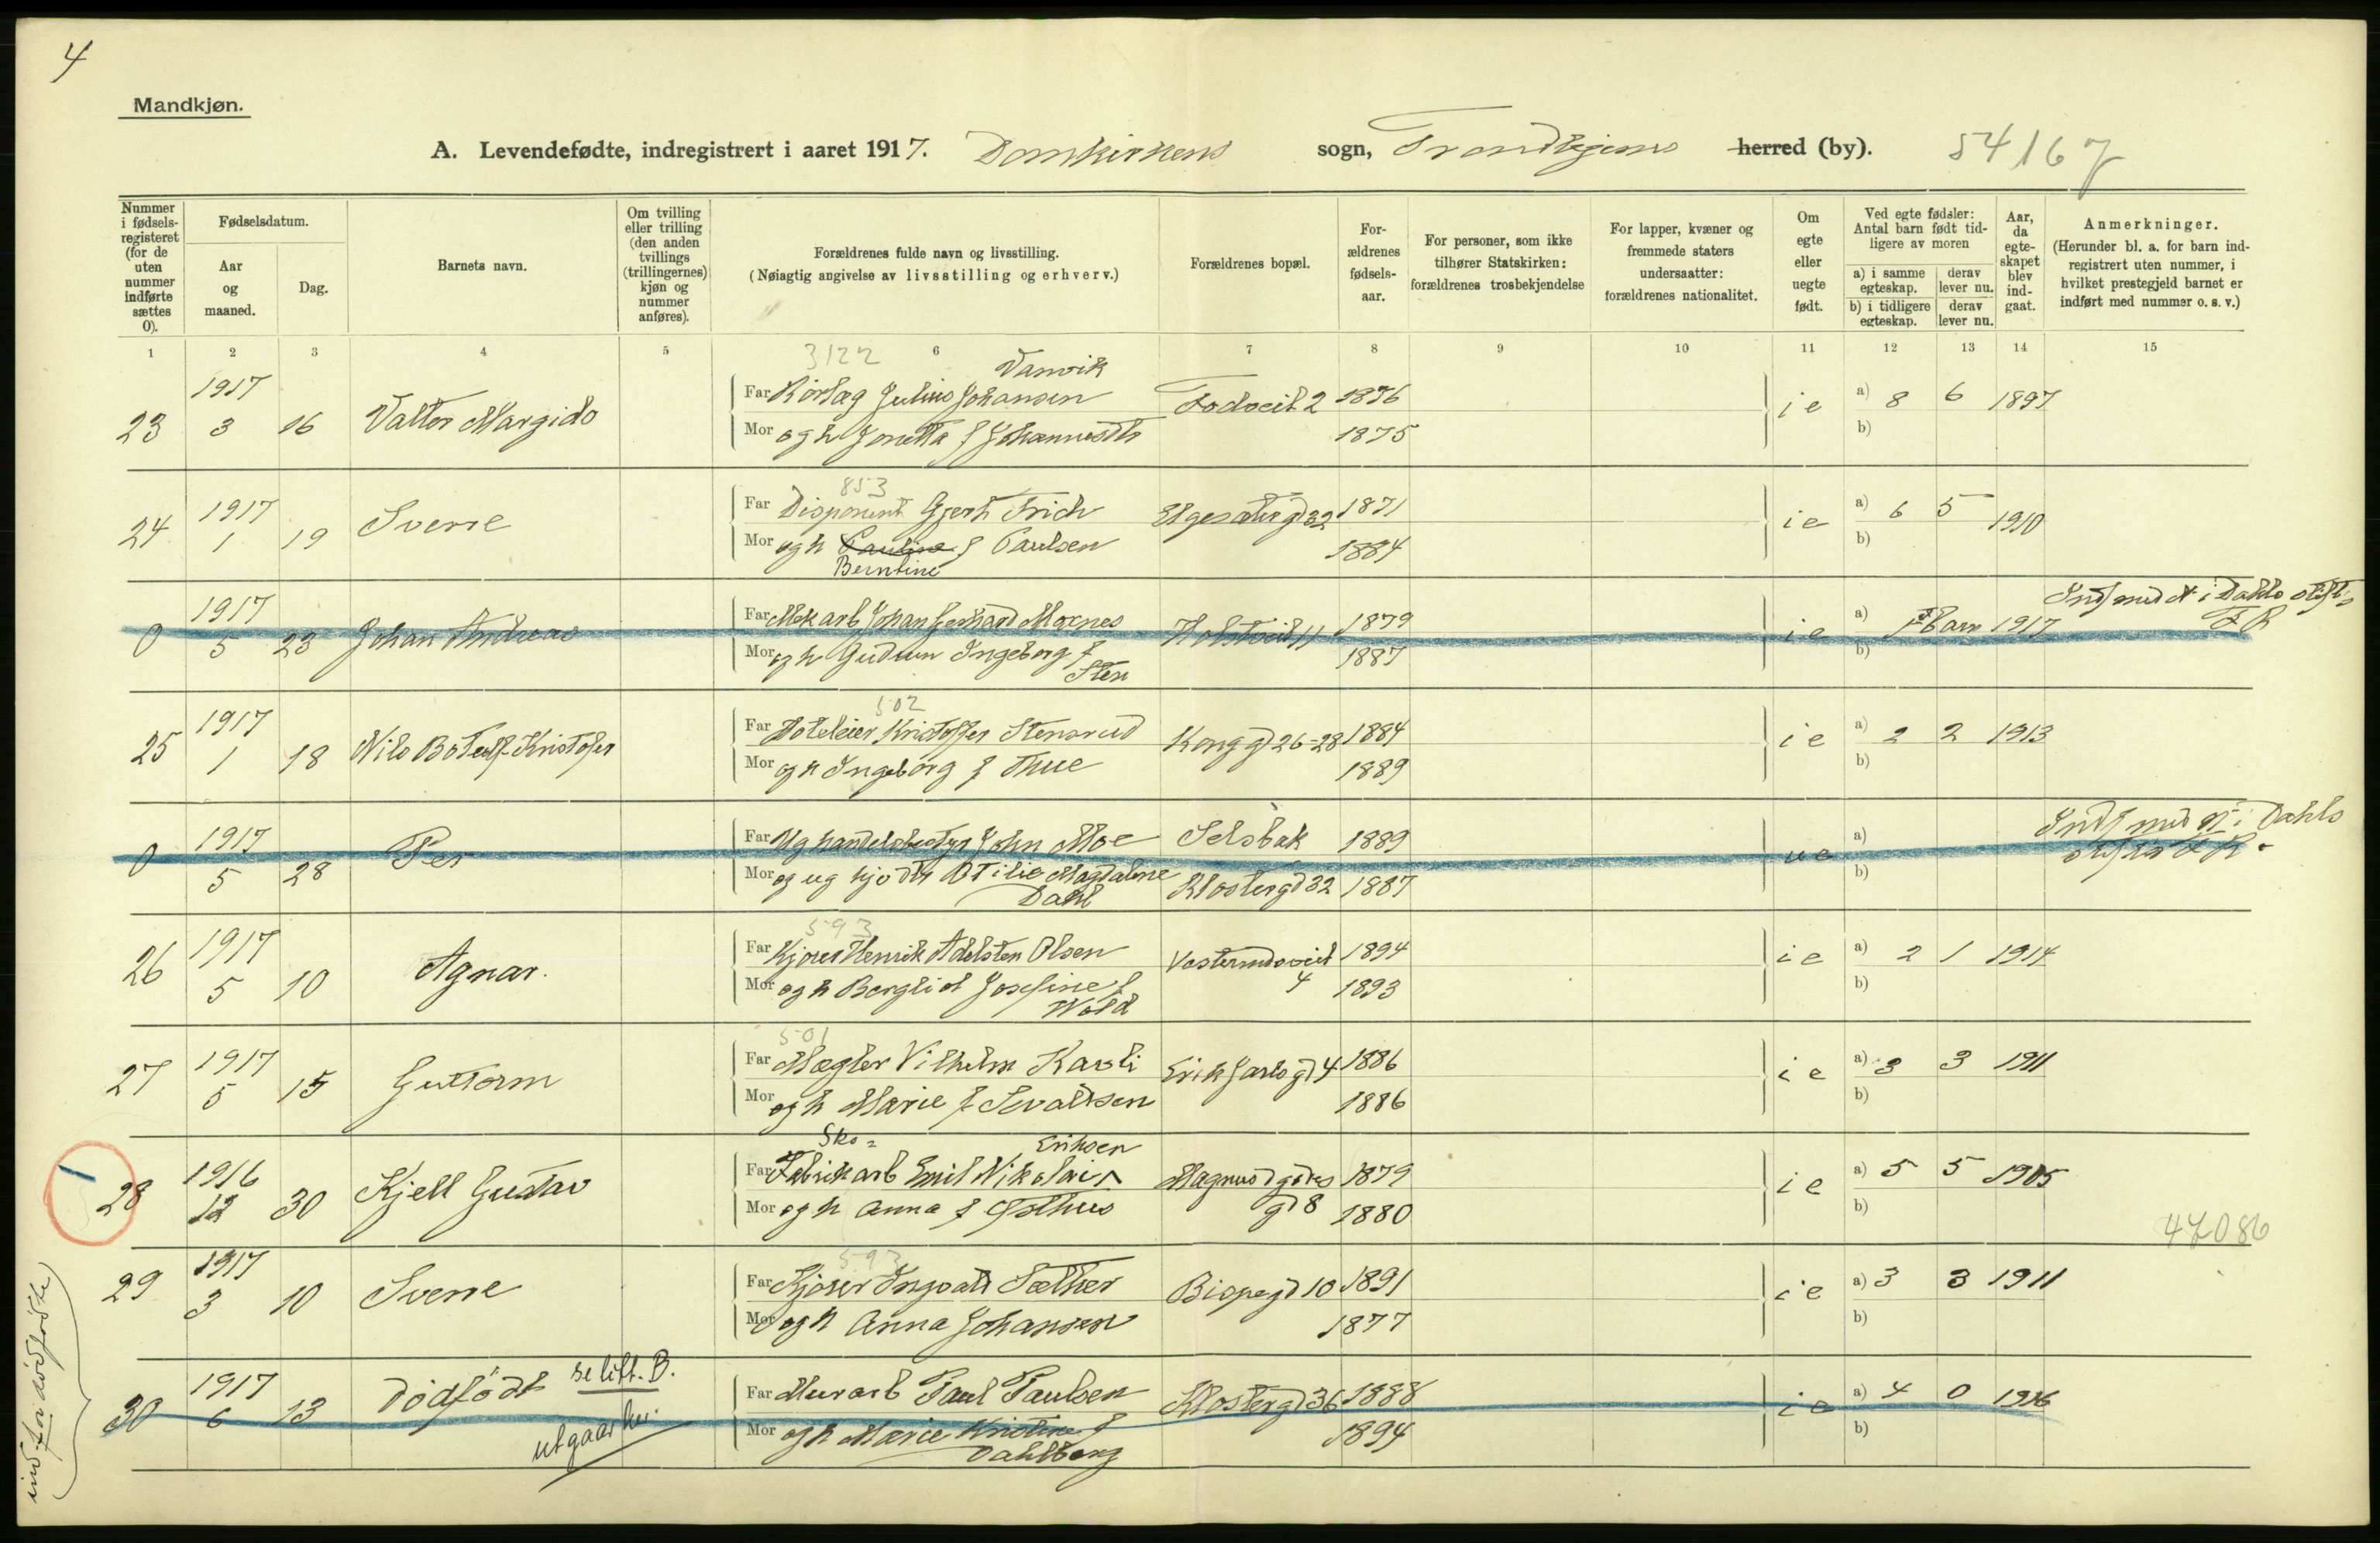 4
Mandkjøn.
A. Levendefødte, indregistrert i aaret 1917. Domkirkens sogn, Trondhjems herred (by). 54167
Nummer i fødsels-registeret (for de uten nummer indførte sættes 0).
Fødselsdatum.
Aar og maaned.
Dag.
Barnets navn.
Om tvilling eller trilling (den anden tvillings (trillingernes) kjøn og nummer anføres).
Forældrenes fulde navn og livsstilling.
(Nøiagtig angivelse av livsstilling og erhverv.)
Forældrenes bopæl.
For-ældrenes fødsels-aar.
For personer, som ikke tilhører Statskirken: forældrenes trosbekjendelse
For lapper, kvæner og fremmede staters undersaatter: forældrenes nationalitet.
Om egte eller uegte født.
Ved egte fødsler: Antal barn født tid-ligere av moren
a) i samme egteskap. derav lever nu.
b) i tidligere egteskap. derav lever nu.
Aar, da egte-skapet blev ind-gaat.
Anmerkninger.
(Herunder bl. a. for barn ind-registrert uten nummer, i hvilket prestegjeld barnet er indført med nummer o. s. v.)
1 2 3 4 5 6 7 8 9 10 11 12 13 14 15
3122
Vanvik
1917
23 3 16 Valter Margido
Far Kørlag Julius Johansen 1876
Mor og h Jonetta f Johannesdtr 1875
ie a) 8 6 1897
b)
853
1917
24 1 19 Sverre
Far Disponent Gjert Frich Elgesæter gd 32 1871
Mor og h Pauline f Paulsen 1884
Berntine
ie a) 6 5 1910
b)
1917
0 5 23 Johan Andreas
Far Mek arb Johan Gerhard Moxnes 1879
Mor og h Gudrun Ingeborg f 1887
Sten
ie a) 1 Barn 1917
b)
502
1917
25 1 18 Nils Botolf Kristofer
Far Hoteleier Kristoffer Stensrud Kong gd 26-28 1884
Mor og h Ingeborg f Thue 1889
ie a) 2 2 1913
b)
1917
0 5 28 Per
Far Ug handelsbestyr John Moe Selsbak 1889
Mor og ug hjdtr Otilie Magdalene Klostergd 32 1887
Dahl
ue a)
b)
593
1917
26 5 10 Agnar.
Far Kjører Henrik Adelsten Olsen 1894
Mor og h Bergliot Josefine f 4 1893
Wold
ie a) 2 1 1914
b)
501
1917
27 5 15 Guttorm
Far Mægler Vilhelm Kavli Erik Jarls gd 4 1886
Mor og h Marie f Sevaldsen 1886
ie a) 3 3 1911
b)
Sko= Eriksen
1
1916
28 12 30 Kjell Gustav
Far Fabrikarb Emil Nikolai Magnus d godes 1879
Mor og h Anna f gd 8 1880
ie a) 5 5 1905
b)
47086
593
1917
29 3 10 Sverre
Far Kjører Ingvald Sæther Bispegd 10 1891
Mor og h Anna Johansen 1877
ie a) 3 3 1911
b)
1917
30 6 13 Dødfødt se litt. B.
utgaar her.
Far Murarb Paul Paulsen Klostergd 36 1888
Mor og h Marie Kristine f 1894
Dahlberg
ie a) 4 0 1916
b)
ind. for dødfødte